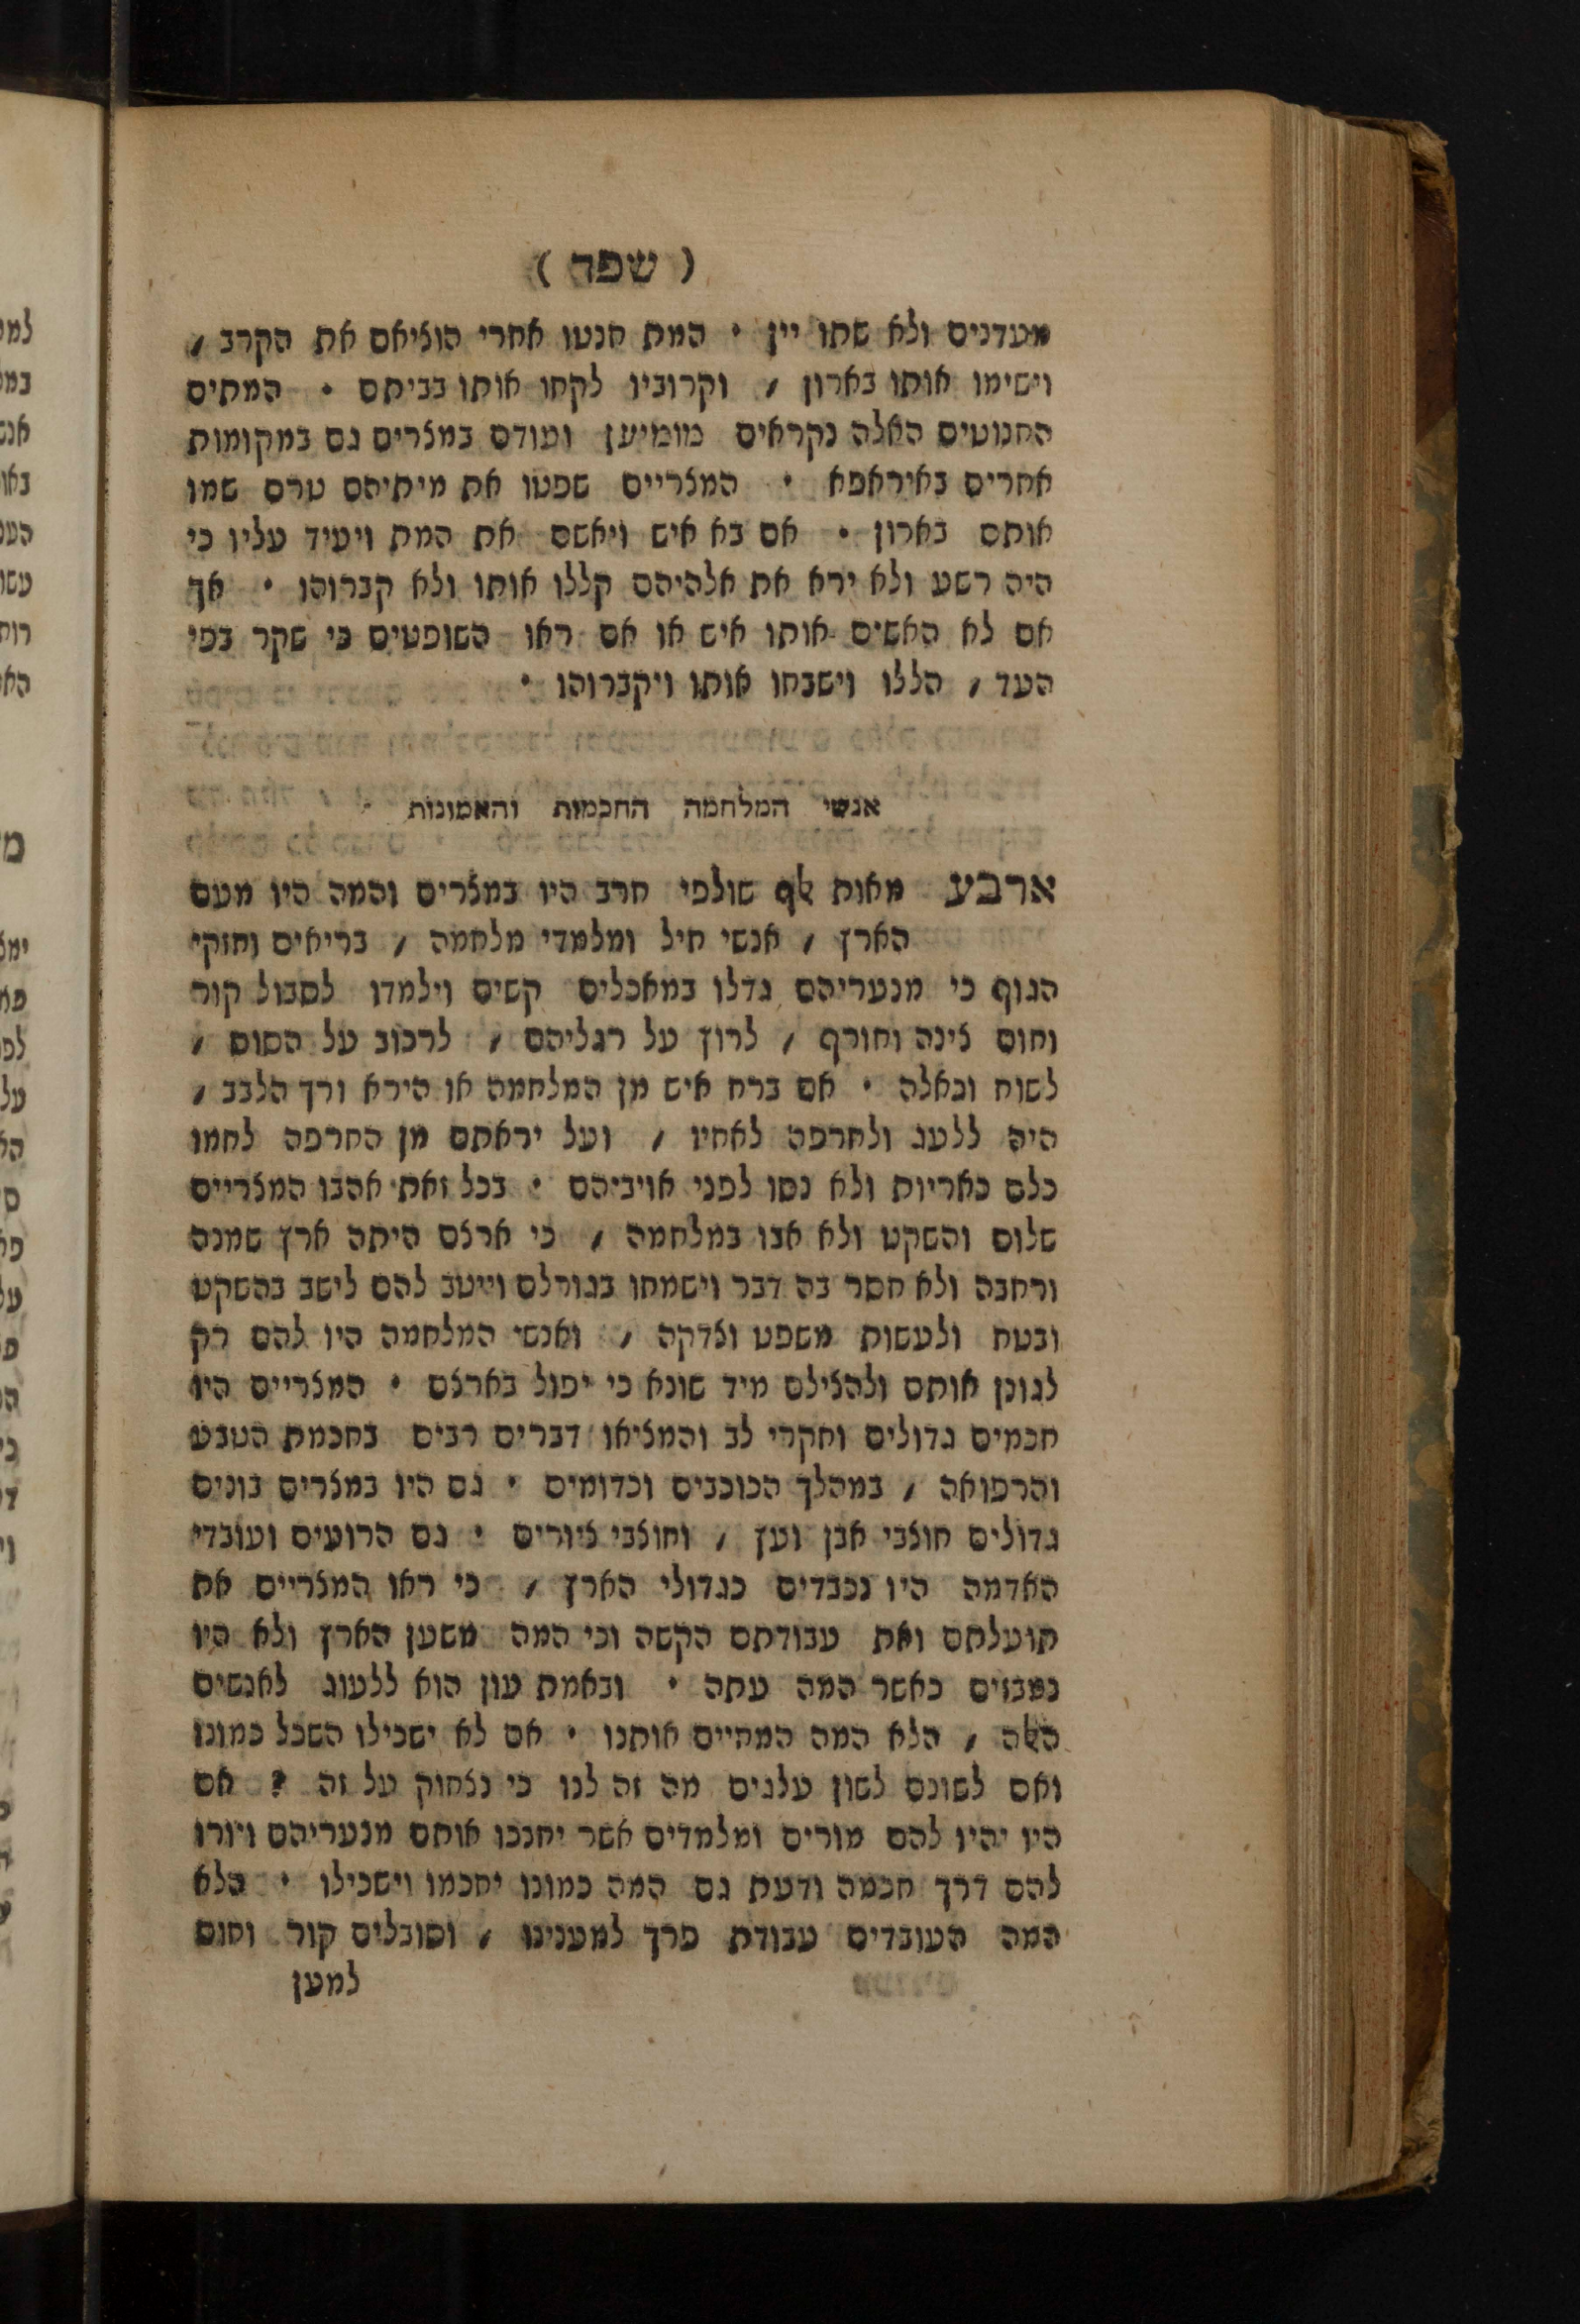 ( שפד )
מעדנים ולא שתו יין • המת חנטו אחרי הוציאם את הקרב ,
וישימו אותו בארון , וקרוביו לקחו אותו בביתם • המתים
החנוטים האלה נקראים מומיען ועודם במצרים גם במקומות
אחרים באיראפא • המצריים שפטו את מיתיהם טרם שמו
אותם בארון • אם בא איש ויאשם את המת ויעיד עליו כי
היה רשע ולא ירא את אלהיהם קללו אותו ולא קברוהו • אך
אם לא האשים אותו איש או אם ראו השופטים כי שקר בפי
העד , הללו וישבחו אותו ויקברוהו •
אנשי המלחמה החכמות והאמונות •
ארבע מאות אלף שולפי חרב היו במצרים והמה היו מעם
הארץ , אנשי חיל ומלמדי מלחמה , בריאים וחזקי
הגוף כי מנעריהם גדלו במאכלים קשים וילמדו לסבול קור
וחום צינה וחורף , לרוץ על רגליהם , לרכוב על הסוס ,
לשוח וכאלה • אם ברח איש מן המלחמה או הירא ורך הלבב ,
היה ללעג ולחרפה לאחיו , ועל יראתם מן החרפה לחמו
כלם כאריות ולא נסו לפני אויביהם • בכל זאת אהבו המצריים
שלום והשקט ולא אבו במלחמה , כי ארצם היתה ארץ שמנה
ורחבה ולא חסר בה דבר וישמחו בגורלם וייטב להם לישב בהשקט
ובטח ולעשות משפט וצדקה , ואנשי המלחמה היו להם רק
לגונן אותם ולהצילם מיד שונא כי יפול בארצם • המצריים היו
חכמים גדולים וחקרי לב והמציאו דברים רבים בחכמת הטבע
והרפואה , במהלך הכוכבים וכדומים • גם היו במצרים בונים
גדולים חוצבי אבן ועץ , וחוצבי ציורים • גם הרועים ועובדי
האדמה היו נכבדים כגדולי הארץ , כי ראו המצריים את
תועלתם ואת עבודתם הקשה וכי המה משען הארץ ולא היו
נמבזים כאשר המה עתה • ובאמת עון הוא ללעוג לאנשים
האלה , הלא המה המחיים אותנו • אם לא ישכילו השכל כמונו
ואם לשונם לשון עלגים מה זה לנו כי נצחוק על זה ? אם
היו יהיו להם מורים ומלמדים אשר יחנכו אותם מנעריהם ויורו
להם דרך חכמה ודעת גם המה כמונו יחכמו וישכילו • הלא
המה העובדים עבודת פרך למענינו , וסובלים קור וחום
למען